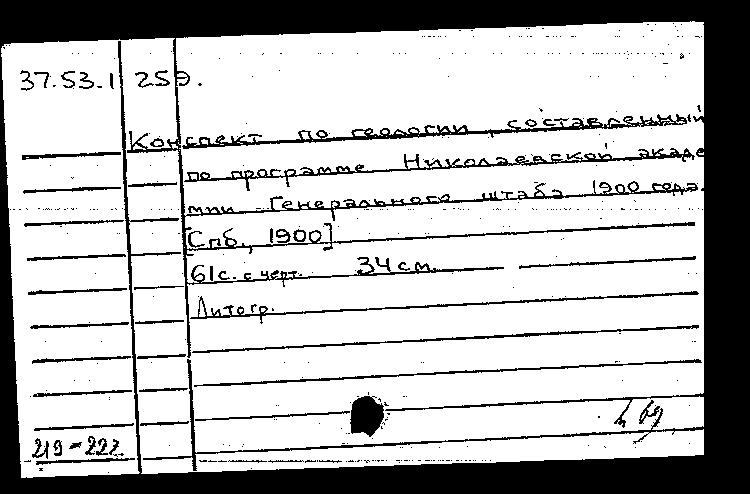 37.53.1 259.
Конспект по геологии, составленный
по программе Николаевской акаде
мии Генерального штаба 1900 года.
[Спб., 1900]
61с. с черт. 34 см.
Литогр.
69
219-222